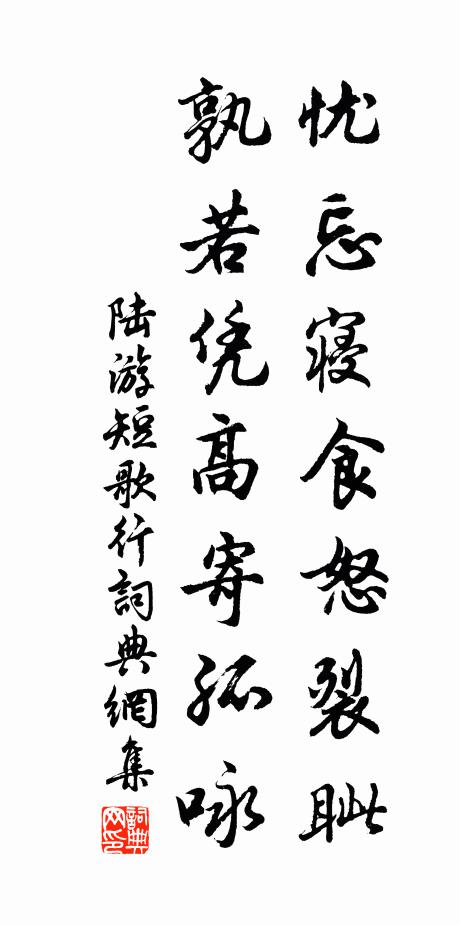 忧忘寝食怒裂眦
孰若凭高寄孤咏
陆游短歌行詞典網集
詞典
网印